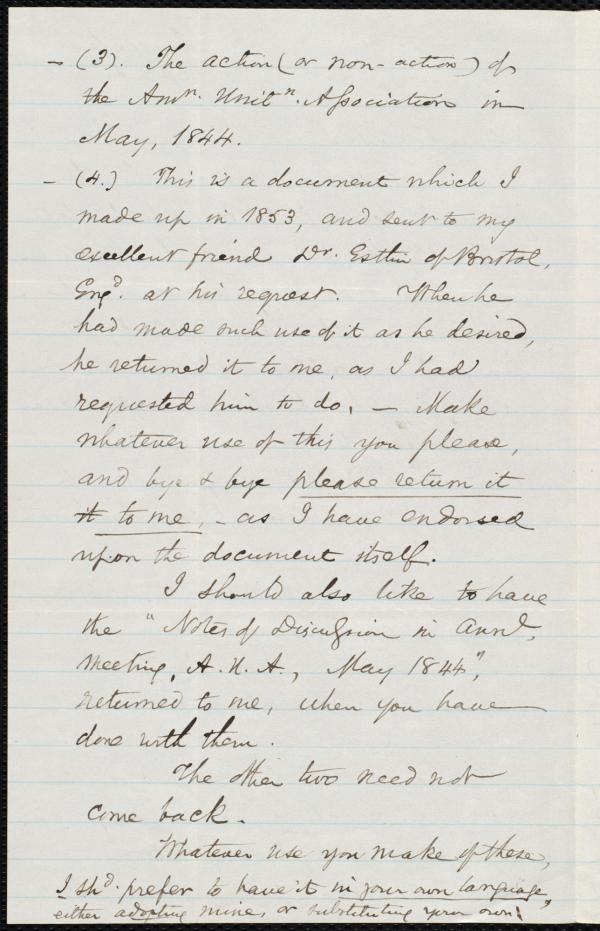 – (3). The action (or non-action) of
the Amn. Unitn. Association in
May, 1844.
– (4.) This is a document which I
made up in 1853, and sent to my
excellent friend Dr. Estlin of Bristol,
Engd. at his request. When he
had made such use of it as he desired,
he returned it to me, as I had
requested him to do. – Make
whatever use of this you please,
and bye & bye please return it
it to me, – as I have endorsed
upon the document itself.
I should also like to have
the "Notes of Discussion in Annl.
Meeting, A. U. A., May 1844",
returned to me, when you have
done with them.
The other two need not
come back.
Whatever use you make of these,
I shd. prefer to have it in your own language,
either adopting mine, or substituting your own.